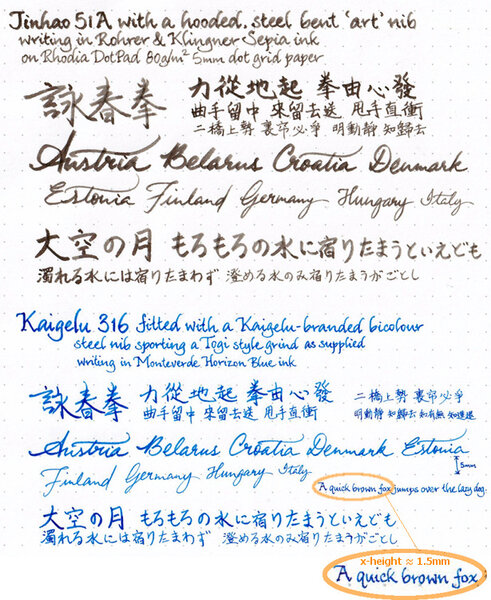 Jinhao 51A with a hooded, steel bent 'art' nib
writing in Rohrer & Klingner Sepia ink
on Rhodia DotPad 80g/m² 5mm dot grid paper
詠春拳 力從地起 拳由心發
曲手留中 來留去送 甩手直衝
二橋上勢 裏帘必爭 明動靜 知歸去
Austria Belarus Croatia Denmark
Estonia Finland Germany Hungary Italy
大空の月 もろもろの水に宿りたまうといえども
濁れる水には宿りたまわず 澄める水のみ宿りたまうがごとし
Kaigelu 316 fitted with a Kaigelu-branded bicolour
steel nib sporting a Togi style grind as supplied
writing in Monteverde Horizon Blue ink
詠春拳 力從地起 拳由心發 二橋上勢 裏帘必爭
曲手留中 來留去送 甩手直衝 明動靜 知歸去 知有無 知進退
Austria Belarus Croatia Denmark Estonia
5mm
Finland Germany Hungary Italy
A quick brown fox jumps over the lazy dog.
大空の月 もろもろの水に宿りたまうといえども
濁れる水には宿りたまわず 澄める水のみ宿りたまうがごとし
x-height ≈ 1.5mm
A quick brown fox